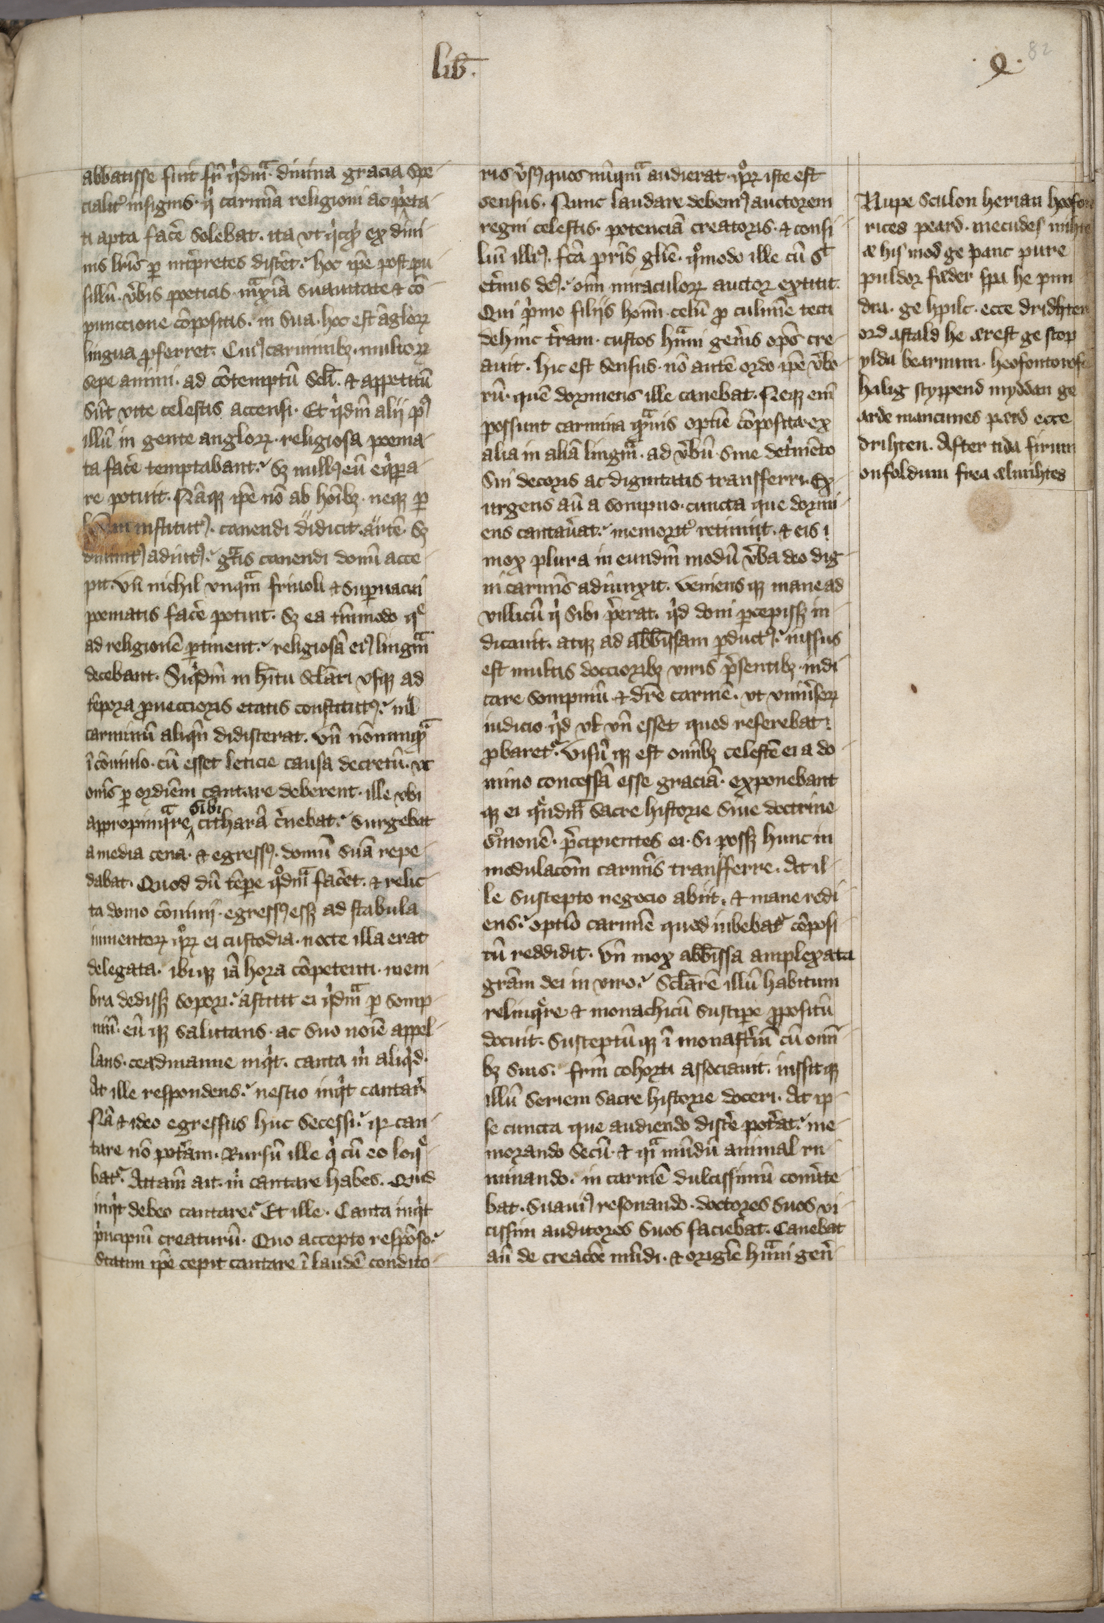 lib̄.
.Q. 82
abbatisse fuit fr̄ q̇dm̄a. diuina gracia spe
cialit᷎ insignis. q̇ carmīa religioni ac p̄eta
ti apta fac̄e solebat. ita vt q̇cq̇ ex diui
nis lr̄is ꝑ int̄pretes disc̄et. hoc ip̄e post pu
sillū. v̄bis poeticis. maxīa suauitate ⁊ cō
punccione cōpositis. in sua. hoc est agloꝝ
lingua ꝓferret. Cuiꝰ carminibꝫ. multoꝝ
sepe animi. ad cōtemptū scl̄i. ⁊ appetitū
sūt vite celestis accensi. Et q̇dm̄ alij pꝰ
illū in gente angloꝝ. religiosa poema
ta fac̄e temptabant. sꝫ nullꝰ eū eq̇pa
re potuit. Nāqꝫ ip̄e nō ab hōibꝫ. neqꝫ ꝑ
institutꝰ. canendi didicit. artē. sꝫ
diuinitꝰ adiutꝰ. gr̄tis canendi donū acce
pit. vn̄ nichil vnqm̄a friuoli ⁊ suꝑuacui
poematis fac̄e potuit. sꝫ ea tm̄modo q̄
ad religionē ꝑtinent. religiosā eiꝰ lingm̄a
decebant. Siq̇dm̄ in hītu sclāri vsqꝫ ad
tēpora ꝓueccioris etatis constitutꝰ. nil
carminū aliqn̄ didiscerat. vn̄ nōnunqā
ī cōuiuio. cū esset leticie causa decretū. vt
om̄s ꝑ ordiēm cantare deberent. ille vbi
appropinqa̅re sibi cithara̅ c̄nebat. surgebat
a media cena. ⁊ egressꝰ. domū suā repe
dabat. Quod dū tēpe qo̅dm̄ fac̄et. ⁊ relic
ta domo cōuiuij. egressꝰ essꝫ ad stabula
iumentoꝝ qoꝝ ei custodia. nocte illa erat
delegata. ibiqꝫ iā hora cōpetenti. mem
bra dedissꝫ sopori. astitit ei q̇dm̄a ꝑ somp
niū. eū qꝫ salutans. ac suo noīe appel
lans. ceadmanne inq̇t. canta m̄ aliq̇d.
At ille respondens. nescio inq̇t cantar̄e
Nā ⁊ ideo egressus huc secessi. qꝛ can
tare nō pot̄am. Rursū ille q̇ cū eo loq̄
bat᷎. Attam̄ ait. m̄ cantare habes. Quid
inq̇t debeo cantare. Et ille. Canta inq̇t
p̄ncipiū creaturū. Quo accepto respōso.
statim ip̄e cepit cantare ī laudē condito
ris v̄sꝰ quos nūqm̄a audierat. qoꝝ iste est
sensus. Nunc laudare debemꝰ auctorem
regni celestis. potenciā creatoris. ⁊ consi
liū illiꝰ. fc̄a pr̄is glīe. qo̅modo ille cū sit
et̄nus deꝰ. oīm miraculoꝝ auctor extitit.
Qui p̄mo filijs homī. celū ꝓ culmīe tecti
dehinc t̄ram. custos hua̅ni gen̄is op̄s cre
auit. hic est sensus. nō autē ordo ip̄e v̄bo
rū. quē dormiens ille canebat. Neqꝫ em̄
possunt carmina qa̅uis optīe cōposita. ex
alia in aliā lingm̄a. ad v̄bū. sine det̄mēto
sui decoris ac dignitatis transferri. Ex
urgens aū a sompno. cuncta que dormi
ens cantau̅at. memorit᷎ retinuit. ⁊ eis
mox plura in eundm̄ modū v̄ba deo dig
ni carmīs adiunxit. veniens qꝫ mane ad
villicū q̇ sibi p̄erat. q̇d doni ꝑcepissꝫ in
dicauit. atqꝫ ad abbīssam ꝑductꝰ. iussus
est multis doccioribꝫ viris p̄sentibꝫ. indi
care sompniū. ⁊ dr̄e carmē. vt vniu̅soꝝ
iudicio q̇d vl̄ vn̄ esset quod referebat.
ꝓbaret᷎. visū qꝫ est om̄ibꝫ celestē ei a do
mino concessā esse graciā. exponebant
qꝫ ei qn̄dm̄a sacre historie siue doctrine
s̄monē. p̄cipientes ei. si possꝫ hunc in
modulacōm carmīs transferre. At il
le suscepto negocio abiit. ⁊ mane redi
ens. optīo carmīe quod iubebat᷎ cōposi
tū reddidit. vn̄ mox abbīssa amplexata
gra̅m dei in viro. sclārē illū habitum
relinqe̅re ⁊ monachicū suscipe ꝓpositū
docuit. Susceptūqꝫ ī monast̄iū cū om̄i
bꝫ suis. fr̄m cohorti associauit. iussitqꝫ
illū seriem sacre historie doceri. At ip
se cuncta que audiendo disc̄e pot̄at. me
morando secū. ⁊ qi̅ mūdū animal ru
minando. in carmē dulcissimū con̄te
bat. suauiꝰ resonando. doctores suos vi
cissim auditores suos faciebat. Canebat
aū de creacōe mūdi. ⁊ origīe hua̅ni gen̄
Nupe sculon herian heofon
rices peard. mecudes mihte
⁊ his mod ge þanc pure
puldor fæder spa he pun
dra. ge hpilc. ecce drihten
ord astald he ærest ge scop
ylda bearnum. heofon to rofe
halig scyppend myddan ge
arde mancinnes peard ecce
drihten. After tida firum
on foldum frea ælmihtes